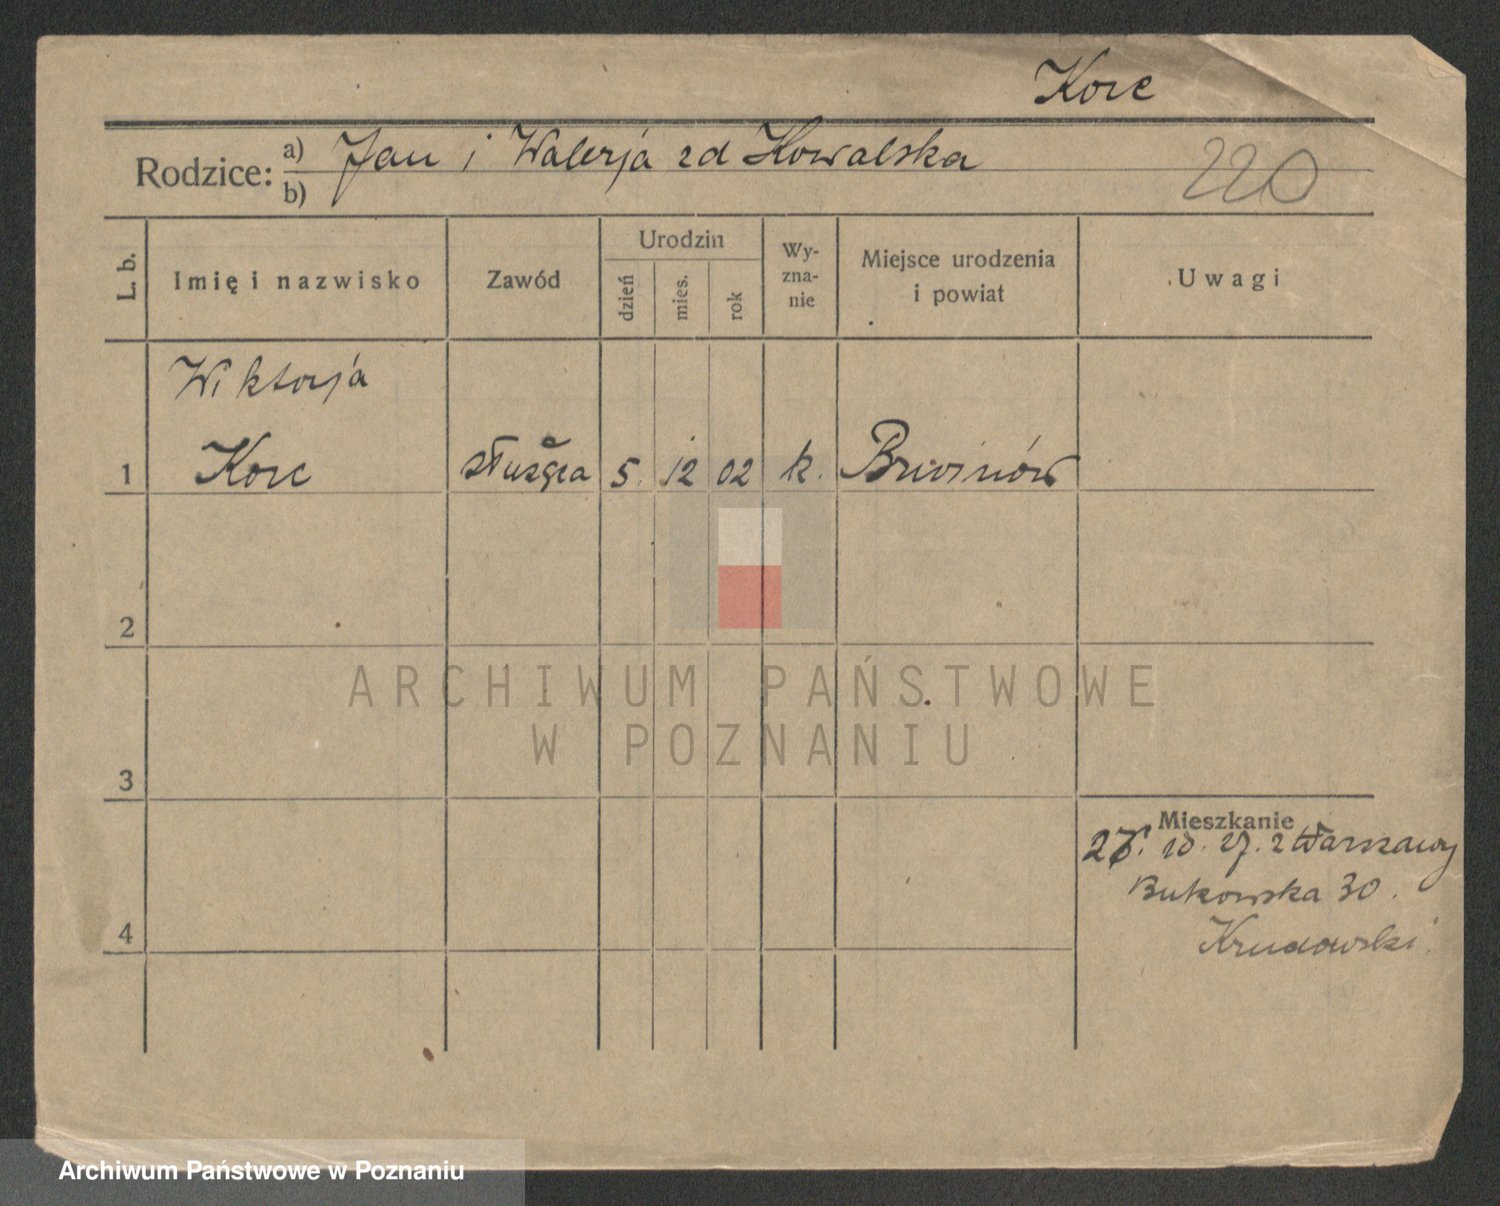 Korc
Rodzice: a) Jan i Walerja zd Kowalska
b)
220
L. b.
Imię i nazwisko
Zawód
Urodzin
dzień
mies.
rok
Wy-
zna-
nie
Miejsce urodzenia
i powiat
Uwagi
Wiktorja
1 Korc służąca 5. 12 02 k. Brwinów
2
3
4
Mieszkanie
10. 27. z Warszawy
Bukowska 30.
ARCHIWUM PAŃSTWOWE
W POZNANIU
Archiwum Państwowe w Poznaniu